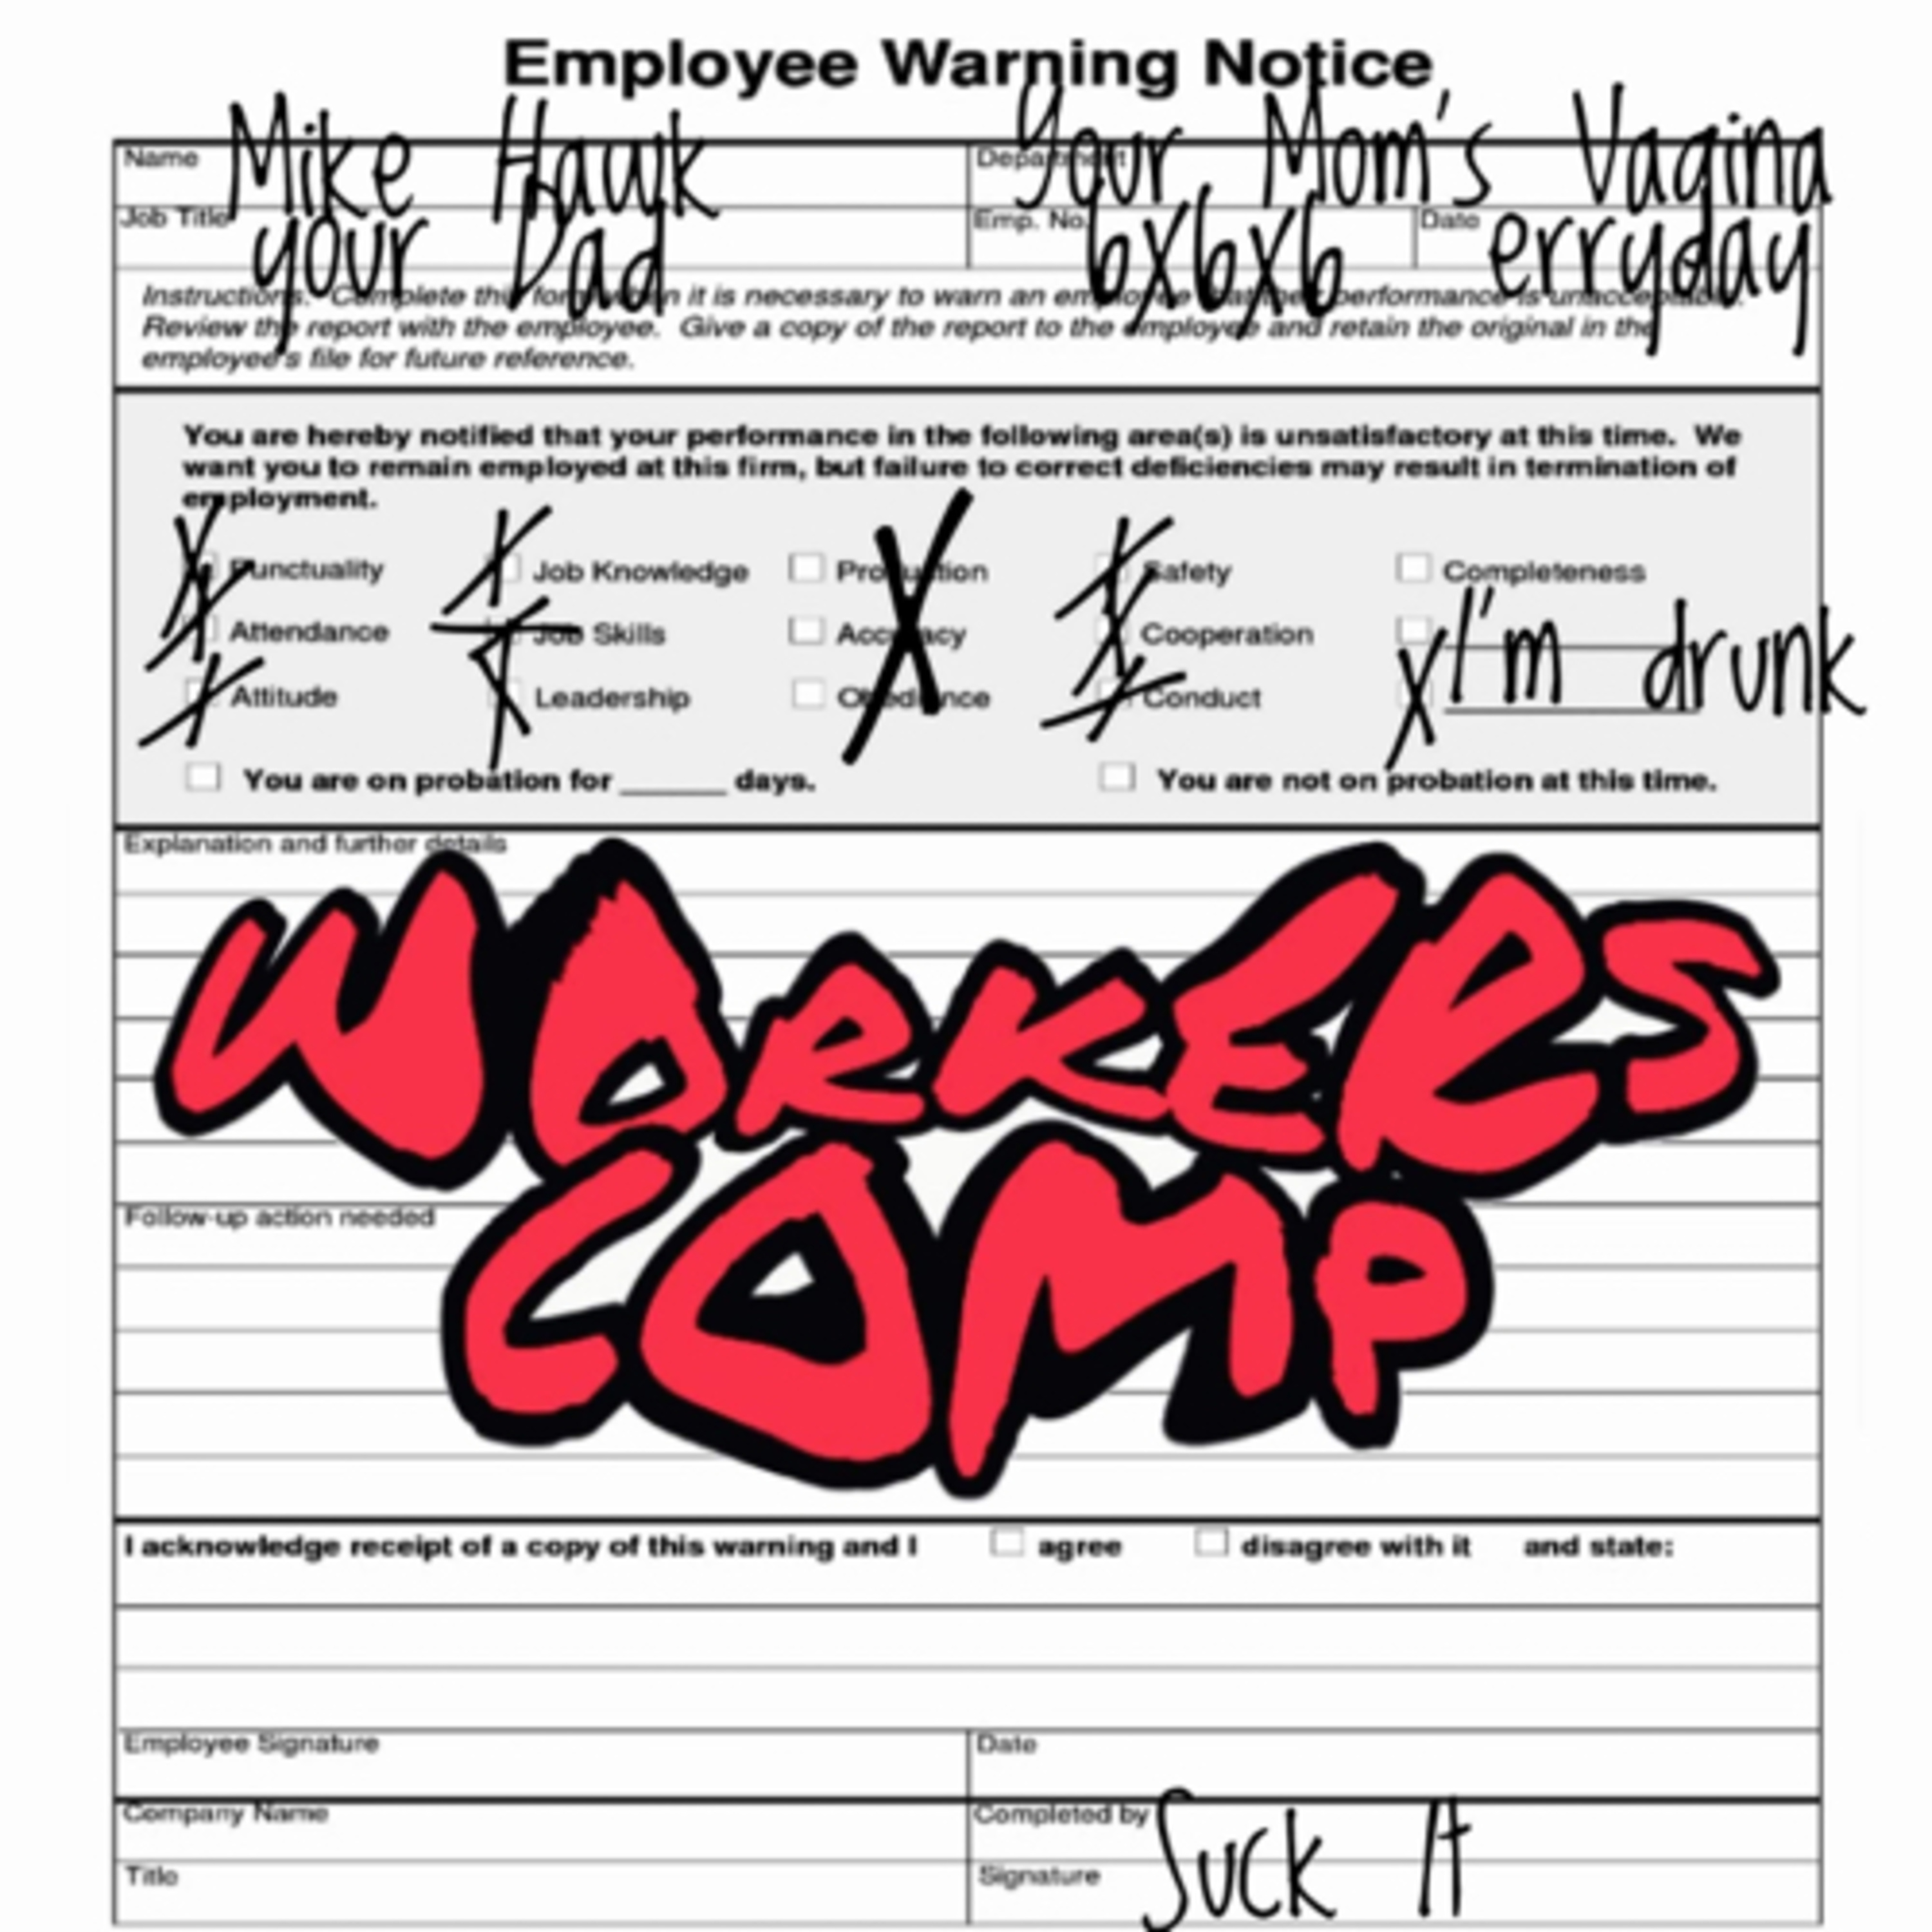 Employee Warning Notice
Name Mike Hawk Department Your Mom's Vagina
Job Title your Dad Emp. No. 6x6x6 Date erryday
Instructions: Complete this form when it is necessary to warn an employee that their performance is unacceptable.
Review the report with the employee. Give a copy of the report to the employee and retain the original in the
employee's file for future reference.
You are hereby notified that your performance in the following area(s) is unsatisfactory at this time. We
want you to remain employed at this firm, but failure to correct deficiencies may result in termination of
employment.
X Punctuality X Job Knowledge Production X Safety Completeness
X Attendance X Job Skills X Accuracy X Cooperation
X Attitude X Leadership Obedience X Conduct X I'm drunk
You are on probation for ______ days. You are not on probation at this time.
Explanation and further details
WORKERS
COMP
Follow-up action needed
I acknowledge receipt of a copy of this warning and I agree disagree with it and state:
Employee Signature Date
Company Name Completed by
Title Signature Suck It